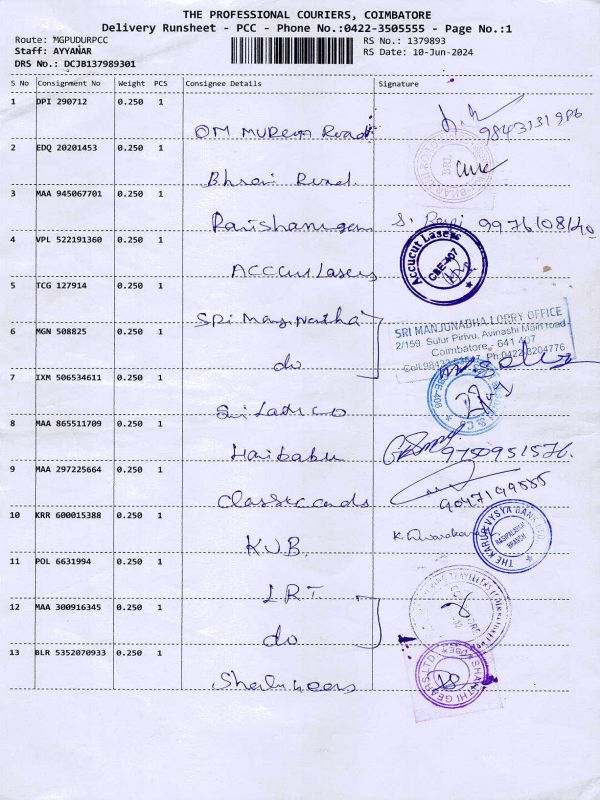 THE PROFESSIONAL COURIERS, COIMBATORE
Delivery Runsheet - PCC - Phone No.:0422-3505555 - Page No.:1
Route: MGPUDURPCC RS No.: 1379893
Staff: AYYANAR RS Date: 10-Jun-2024
DRS No.: DCJB137989301
S No Consignment No Weight PCS Consignee Details Signature
1 DPI 290712 0.250 1
OM MURUGA Road 9843131986
2 EDQ 20201453 0.250 1
Bhari Road
3 MAA 945067701 0.250 1
Ravishanugam S. Ravi 9976108140
4 VPL 522191360 0.250 1
ACCCut Lasers
Accucut Lasers
CBE-407
5 TCG 127914 0.250 1
Sri Manjunatha
SRI MANJUNADHA LORRY OFFICE
2/159, Sulur Pirivu, Avinashi Main road
Coimbatore - 641 407
6 MGN 508825 0.250 1
do
7 IXM 506534611 0.250 1
8 MAA 865511709 0.250 1
Haibabu 9750951576
9 MAA 297225664 0.250 1
Classic cards 9047149555
10 KRR 600015388 0.250 1
KVB
THE KARUR VYSYA BANK LTD
BRANCH
11 POL 6631994 0.250 1
LRT
12 MAA 300916345 0.250 1
do
13 BLR 5352070933 0.250 1
SHANTHI GEARS LTD